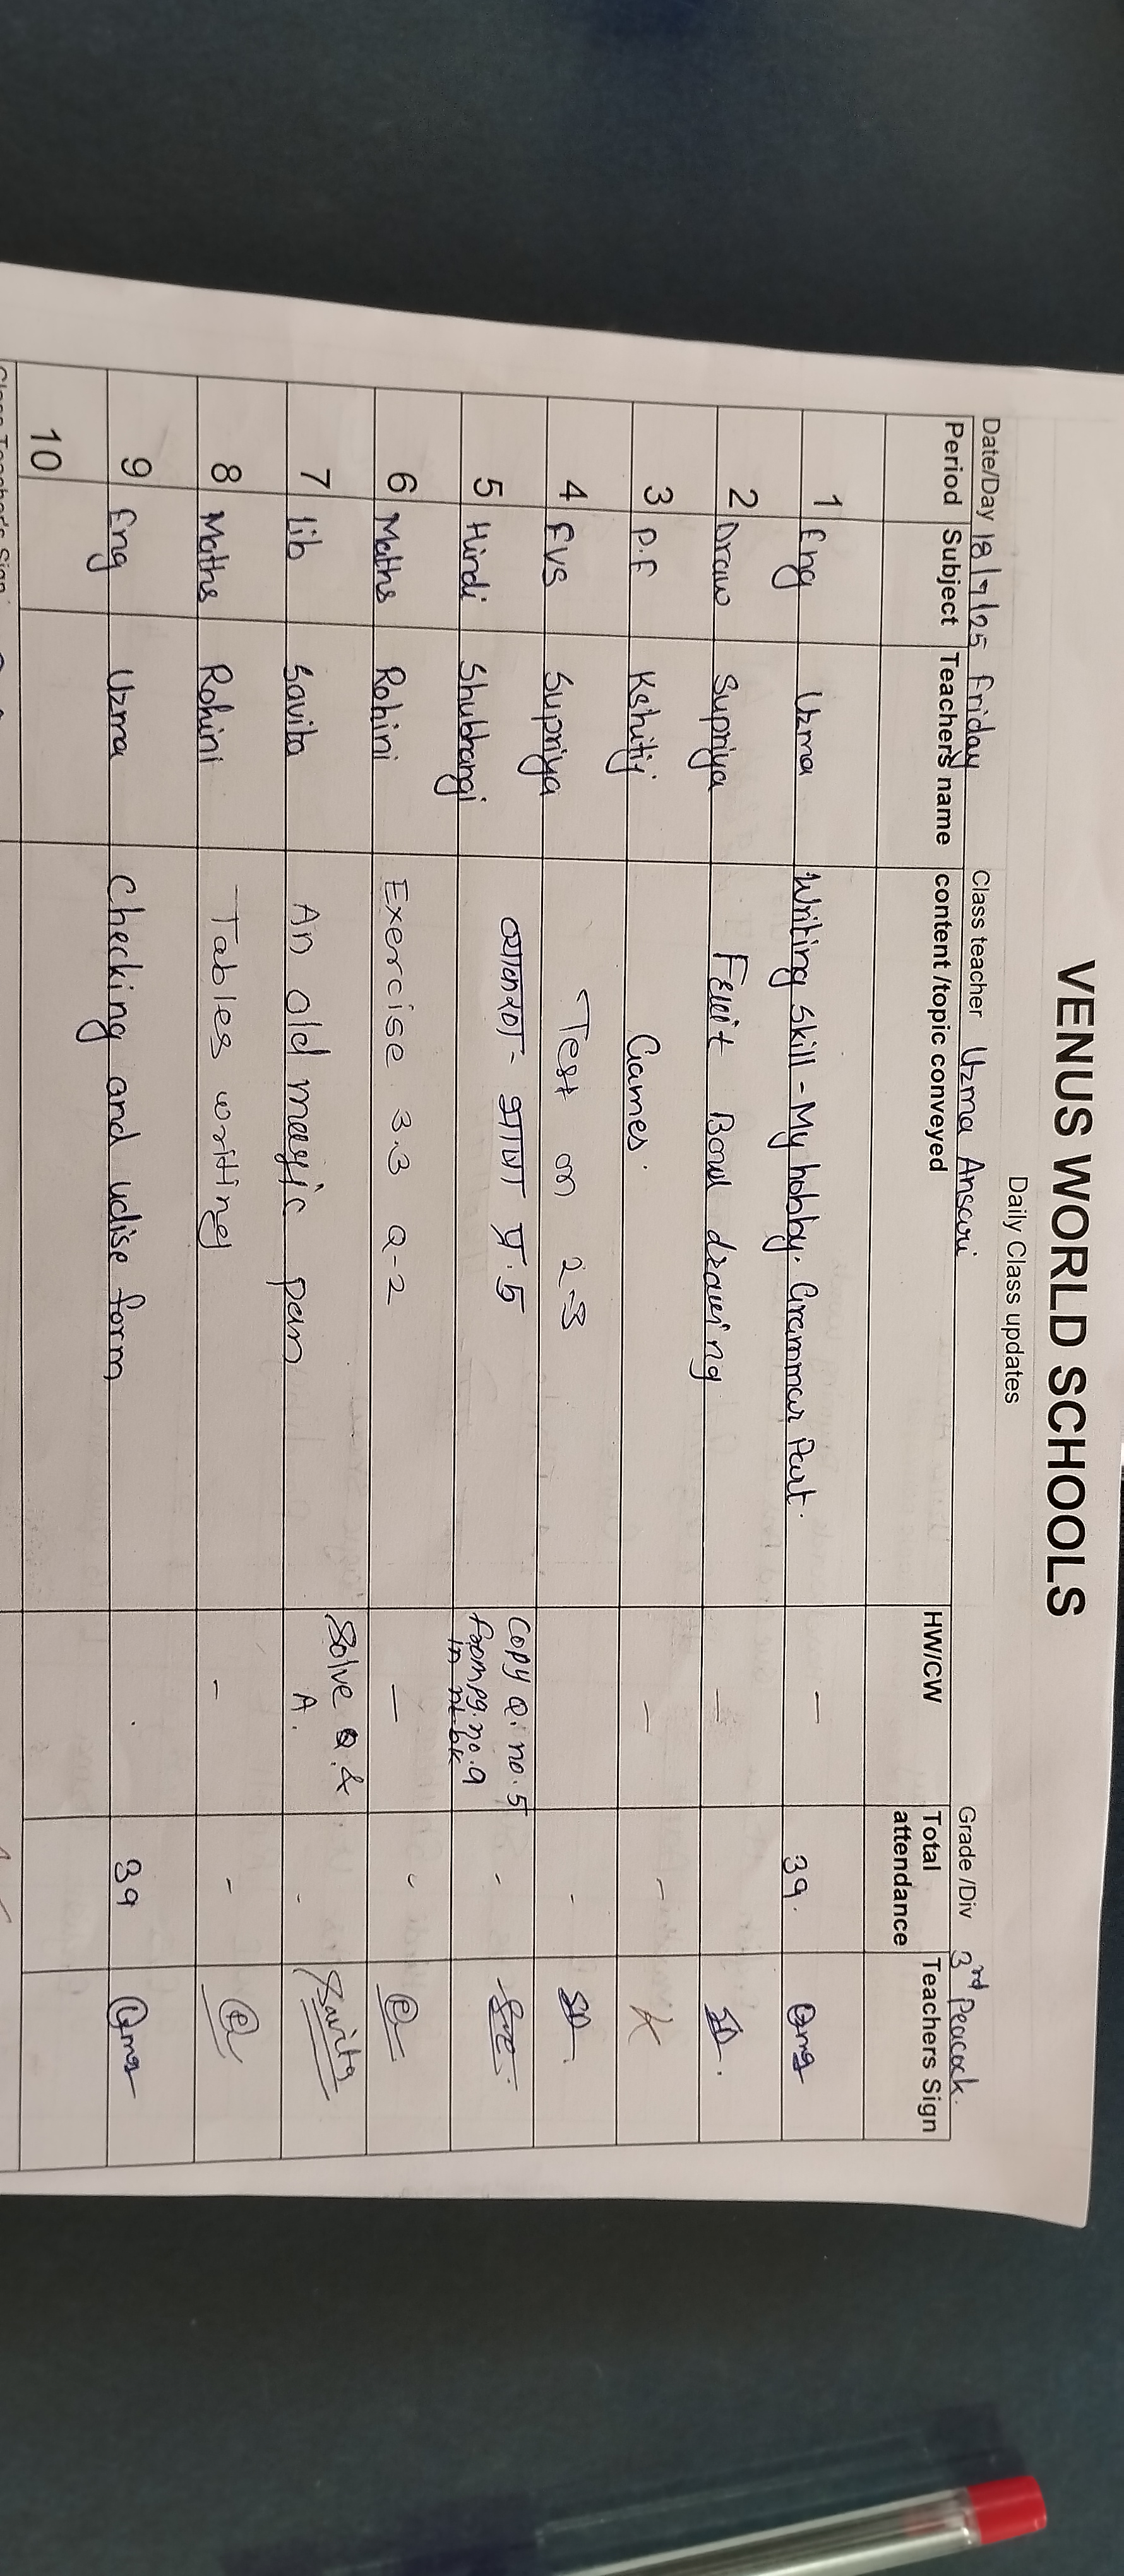 VENUS WORLD SCHOOLS
Daily Class updates
Date/Day 18/7/25 Friday Class teacher Uzma Ansari Grade /Div 3rd Peacock.
Period Subject Teachers name content /topic conveyed HW/CW Total attendance Teachers Sign
1 Eng Uzma Writing Skill - My hobby. Grammar Part. - 39.
2 Draw Supriya Fruit Bowl drawing -
3 P.E Kshitij Games. - - K
4 EVS Supriya Test on 2.3 -
5 Hindi Shubhangi भाषा प्र.5 Copy Q. no. 5 from pg. no. 9 in nt bk -
6 Maths Rohini Exercise 3.3 Q-2 -
7 Lib Savita An old magic pen Solve Q & A. - Savita
8 Maths Rohini Tables writing - -
9 Eng Uzma Checking and udise form . 39
10